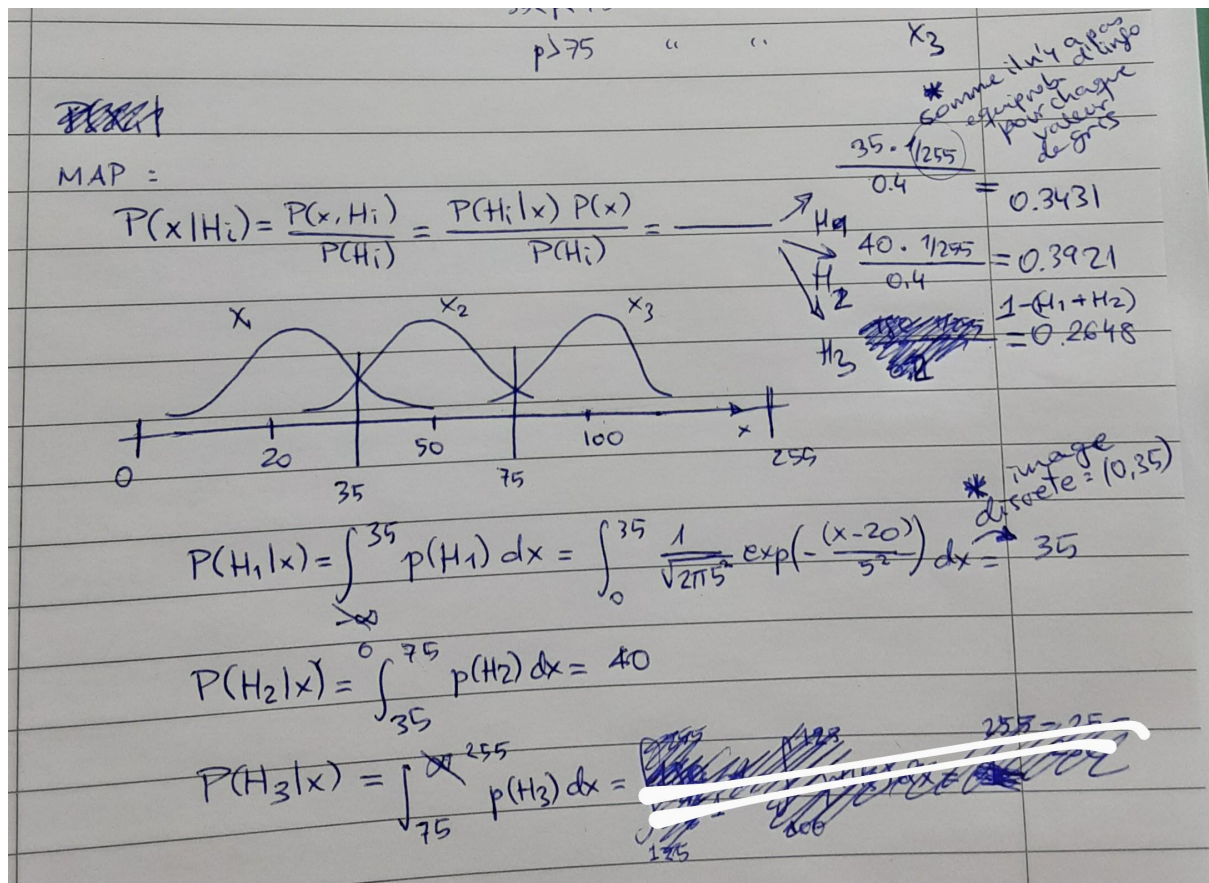 p>75 " " x₃
* comme il n'y a pas d'info
equiprob.
pour chaque
valeur
de gris
MAP :
P(x|Hᵢ) = P(x,Hᵢ)/P(Hᵢ) = P(Hᵢ|x) P(x)/P(Hᵢ) = ———
H1 35 · 1/255 / 0.4 = 0.3431
H₂ 40 · 1/255 / 0.4 = 0.3921
H₃ 1-(H₁+H₂) = 0.2648
x₁ x₂ x₃
0 20 35 50 75 100 x 255
* image
discrete = (0,35)
P(H₁|x) = ∫₀³⁵ p(H₁) dx = ∫₀³⁵ 1/√2π5² exp(-(x-20)/5²) dx = 35
P(H₂|x) = ∫₃₅⁷⁵ p(H₂) dx = 40
P(H₃|x) = ∫₇₅²⁵⁵ p(H₃) dx =